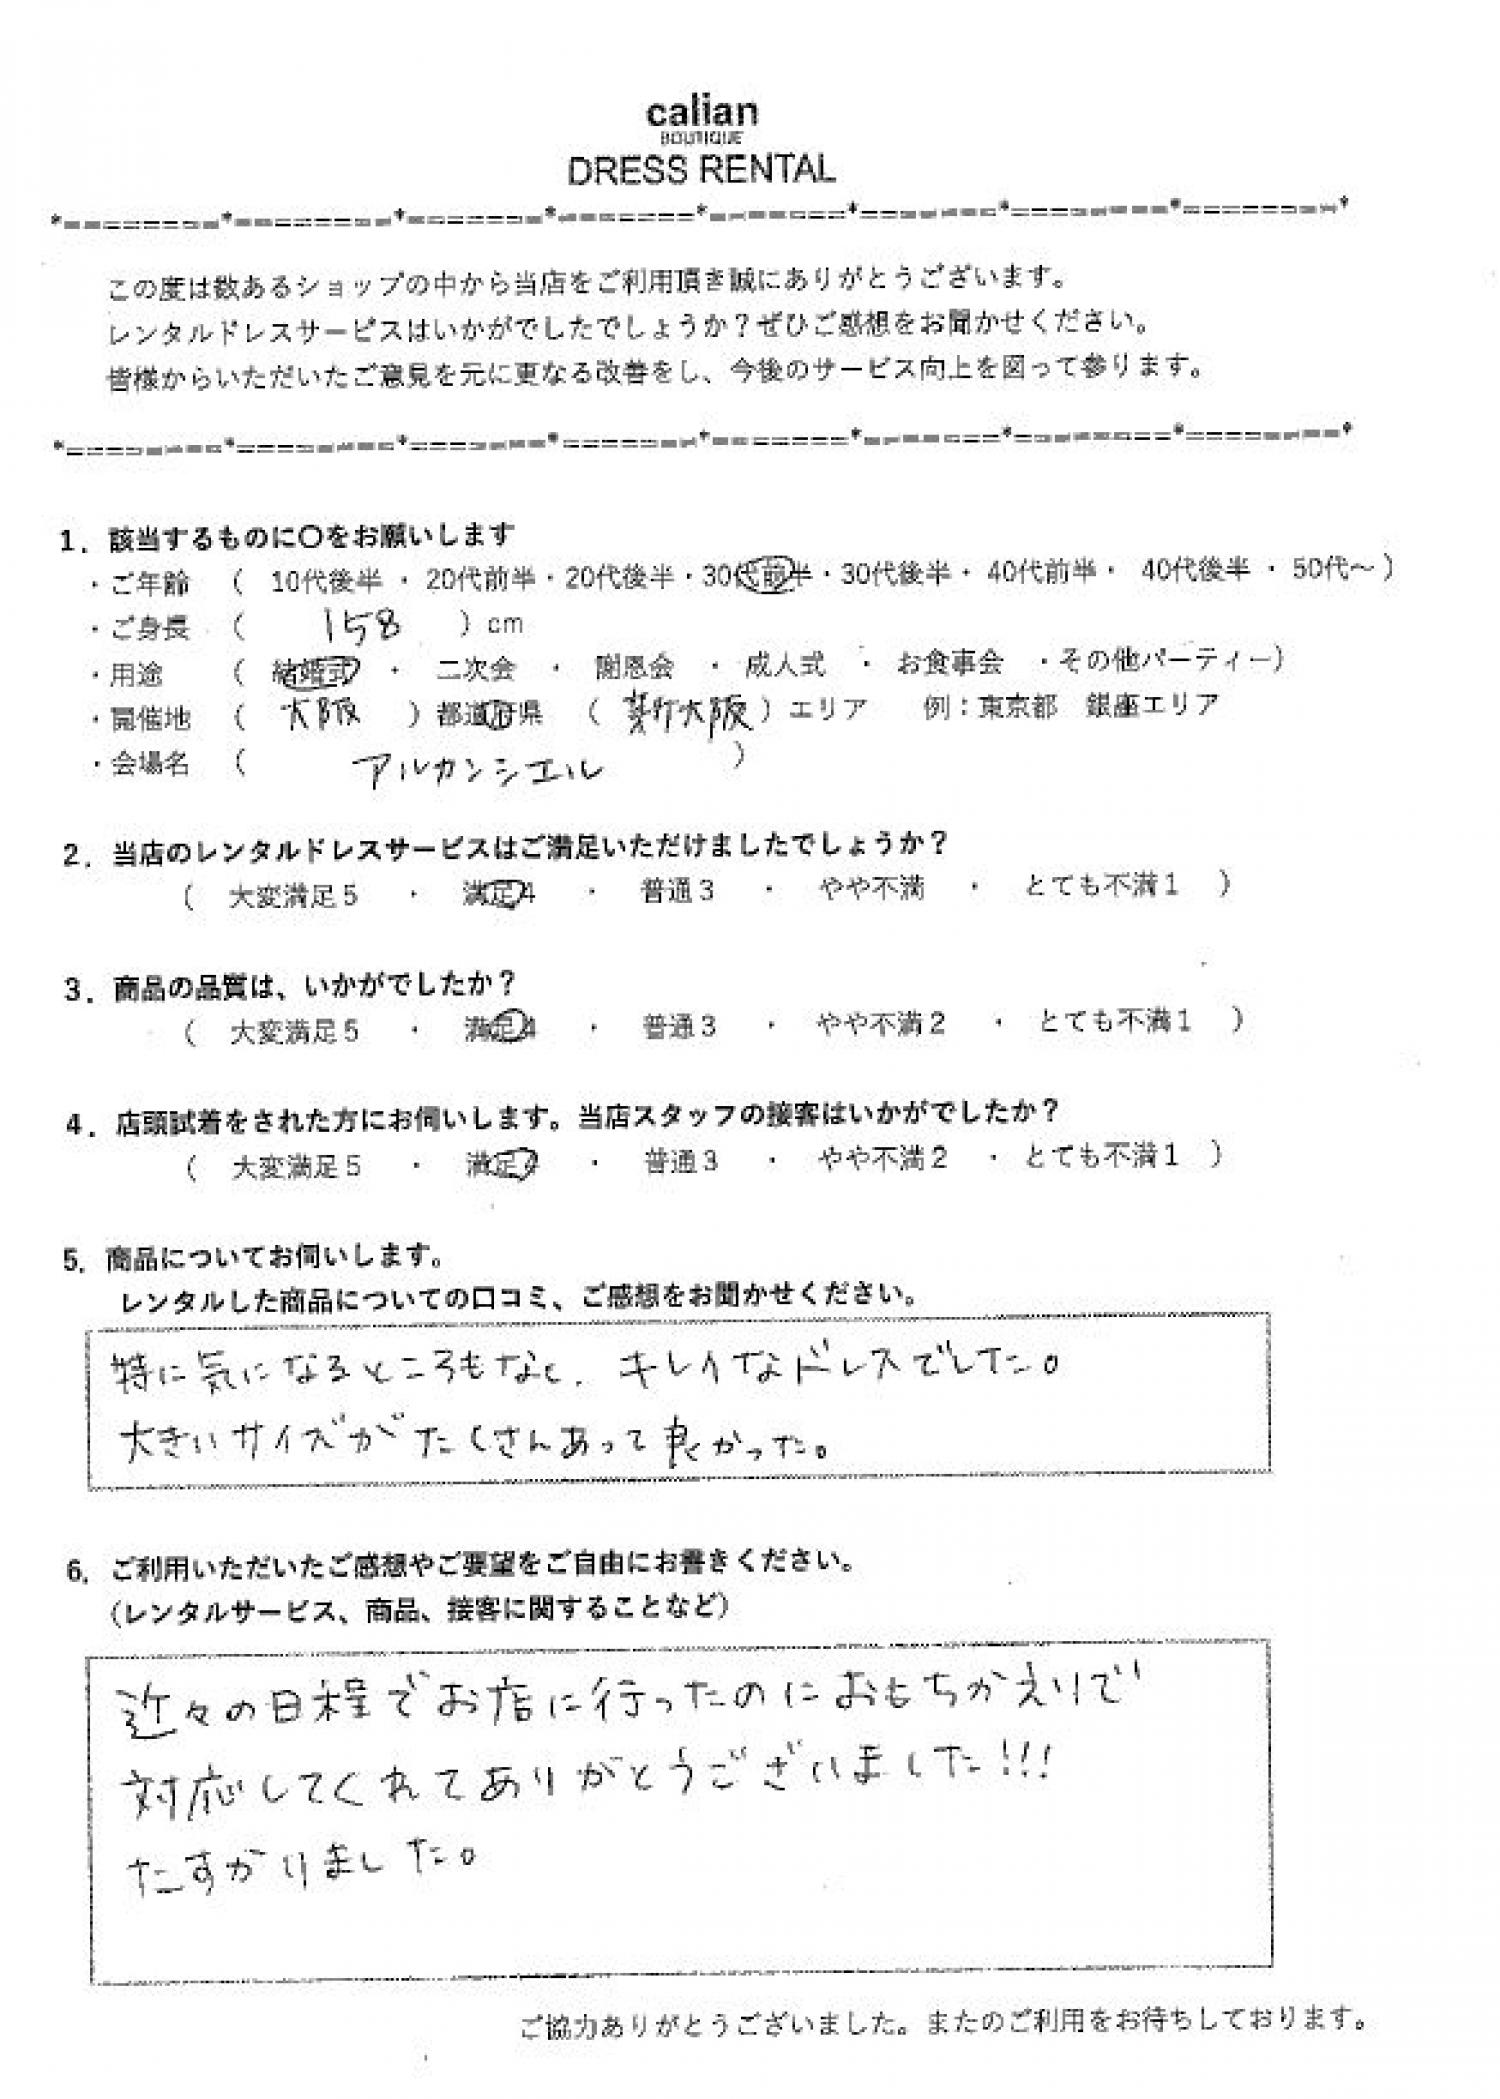 calian
BOUTIQUE
DRESS RENTAL
*========*========*=======*=======*=======*=======*========*========*
この度は数あるショップの中から当店をご利用頂き誠にありがとうございます。
レンタルドレスサービスはいかがでしたでしょうか？ぜひご感想をお聞かせください。
皆様からいただいたご意見を元に更なる改善をし、今後のサービス向上を図って参ります。
*========*========*=======*=======*=======*=======*========*========*
1．該当するものに〇をお願いします
・ご年齢 （ 10代後半 ・ 20代前半・20代後半・30代前半・30代後半・ 40代前半・ 40代後半 ・ 50代～）
・ご身長 （ 158 ）cm
・用途 （ 結婚式 ・ 二次会 ・ 謝恩会 ・ 成人式 ・ お食事会 ・その他パーティー）
・開催地 （ 大阪 ）都道府県 （ 新大阪 ）エリア 例：東京都 銀座エリア
・会場名 （ アルカンシエル ）
2．当店のレンタルドレスサービスはご満足いただけましたでしょうか？
（ 大変満足５ ・ 満足4 ・ 普通３ ・ やや不満 ・ とても不満１ ）
3．商品の品質は、いかがでしたか？
（ 大変満足５ ・ 満足4 ・ 普通３ ・ やや不満２ ・ とても不満１ ）
4．店頭試着をされた方にお伺いします。当店スタッフの接客はいかがでしたか？
（ 大変満足５ ・ 満足4 ・ 普通３ ・ やや不満２ ・ とても不満１ ）
5．商品についてお伺いします。
レンタルした商品についての口コミ、ご感想をお聞かせください。
特に気になるところもなく、キレイなドレスでした。
大きいサイズがたくさんあって良かった。
6．ご利用いただいたご感想やご要望をご自由にお書きください。
（レンタルサービス、商品、接客に関することなど）
近々の日程でお店に行ったのにおもちかえりで
対応してくれてありがとうございました!!!
たすかりました。
ご協力ありがとうございました。またのご利用をお待ちしております。